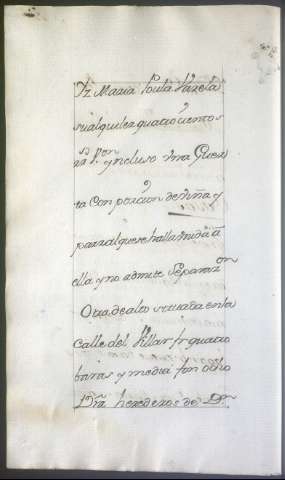 Dª Maria Paula Varela
su alquiler quatrocientos
rs. von. yncluso vna Guer
ta con porcion de viña y
parral que se halla vnida â
ella y no admite separazon
Otra de alto situada en la
Calle del Villar fr. quatro
baras y media fon. ocho
Dra. herederos de Dn.